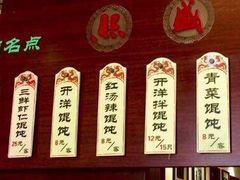 名点
三鲜虾仁馄饨
25元/客
开洋馄饨
8元/客
红汤辣馄饨
8元/客
开洋拌馄饨
12元/15只
青菜馄饨
8元/客